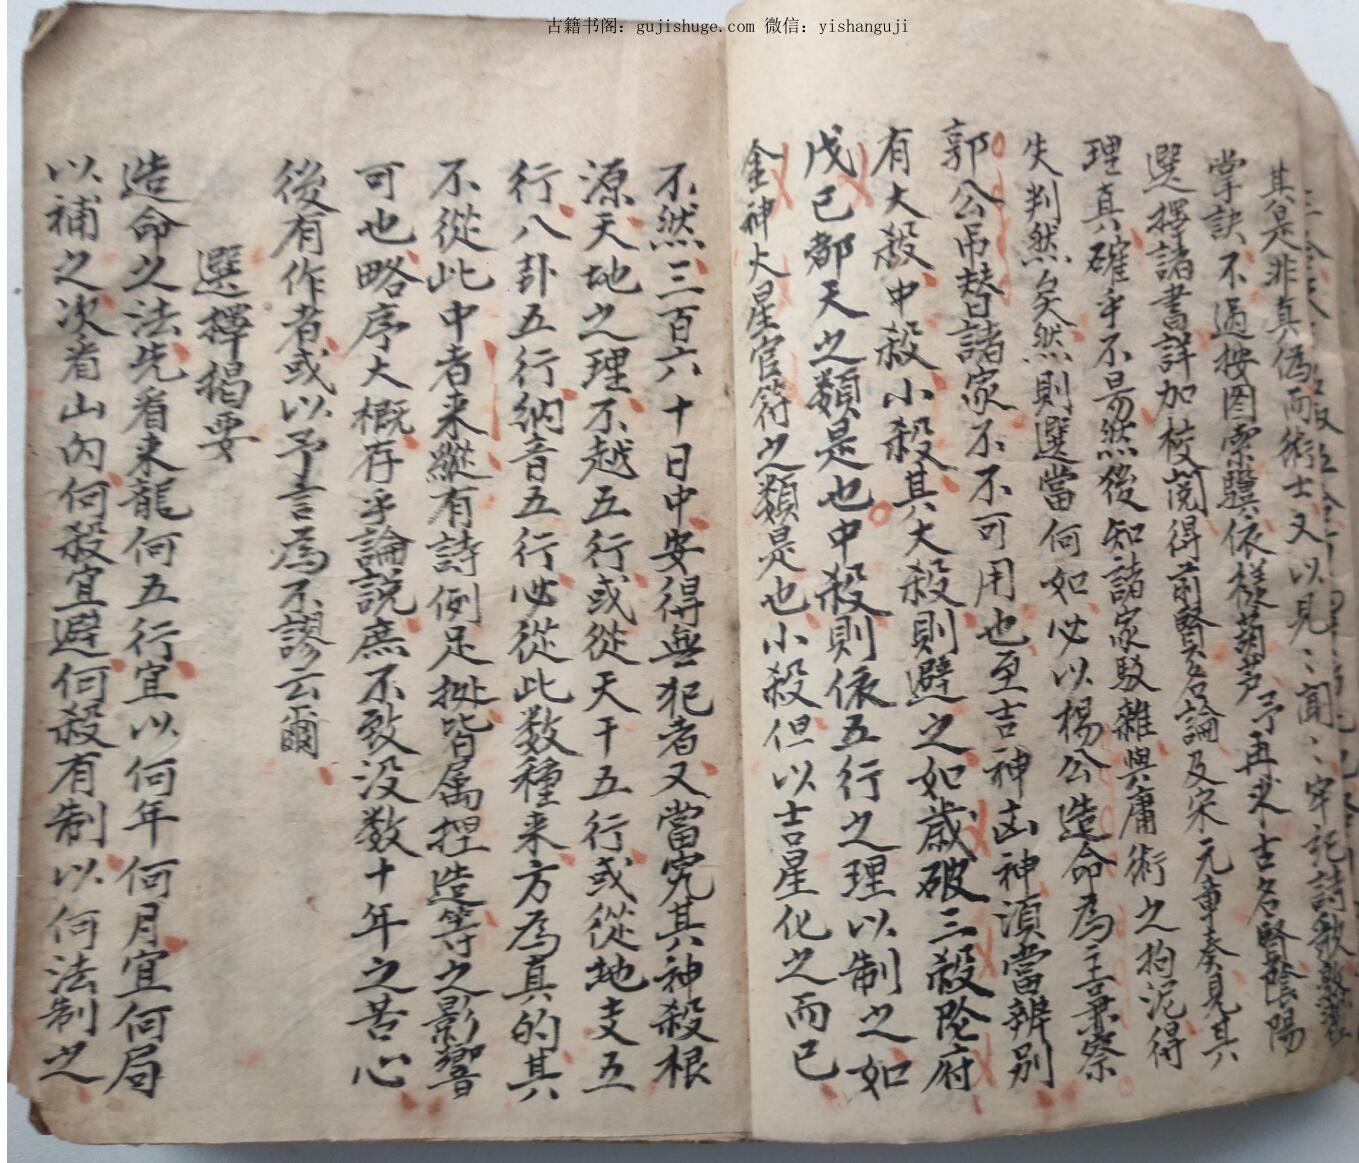 古籍书阁：gujishuge.com 微信：yishanguji
其是非真偽而術士又以見〻聞〻牢記詩歌熟
掌訣不過按图索驥依様葫芦予再求古名賢陰陽
選擇諸書詳加校閲得前賢名論及宋元章奏見其
理真確乎不易然後知諸家駁雜與庸術之拘泥得
失判然矣然則選當何如必以楊公造命為主兼察
郭公吊替諸家不不可用也至吉神凶神須當辨别
有大殺中殺小殺其大殺則避之如歲破三殺陰府
戊己都天之類是也中殺則依五行之理以制之如
金神火星官符之類是也小殺但以吉星化之而已
不然三百六十日中安得無犯者又當究其神殺根
源天地之理不越五行或從天干五行或從地支五
行八卦五行納音五行必從此数種来方為真的其
不從此中者来縱有詩例足拠皆属捏造等之影響
可也略序大概存乎論説庶不致没数十年之苦心
後有作者或以予言為不謬云爾
選擇揭要
造命之法先看来龍何五行宜以何年何月宜何局
以補之次看山内何殺宜避何殺有制以何法制之